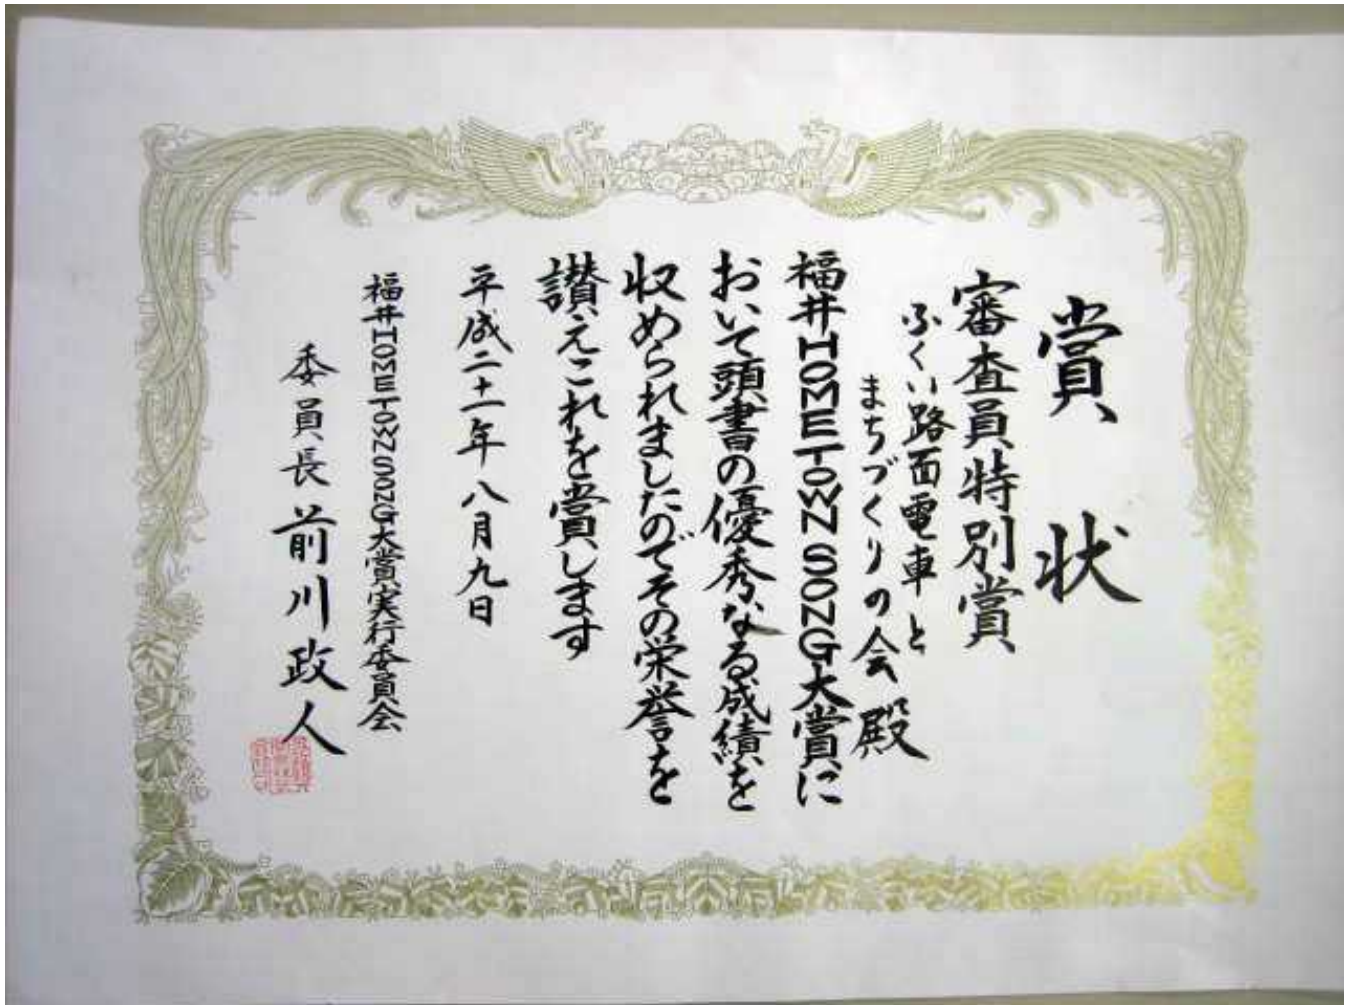 賞状
審査員特別賞
ふくい路面電車と
まちづくりの会殿
福井HOMETOWNSONG大賞に
おいて頭書の優秀なる成績を
収められましたのでその栄誉を
讃えこれを賞します
平成二十一年八月九日
福井HOMETOWNSONG大賞実行委員会
委員長前川政人